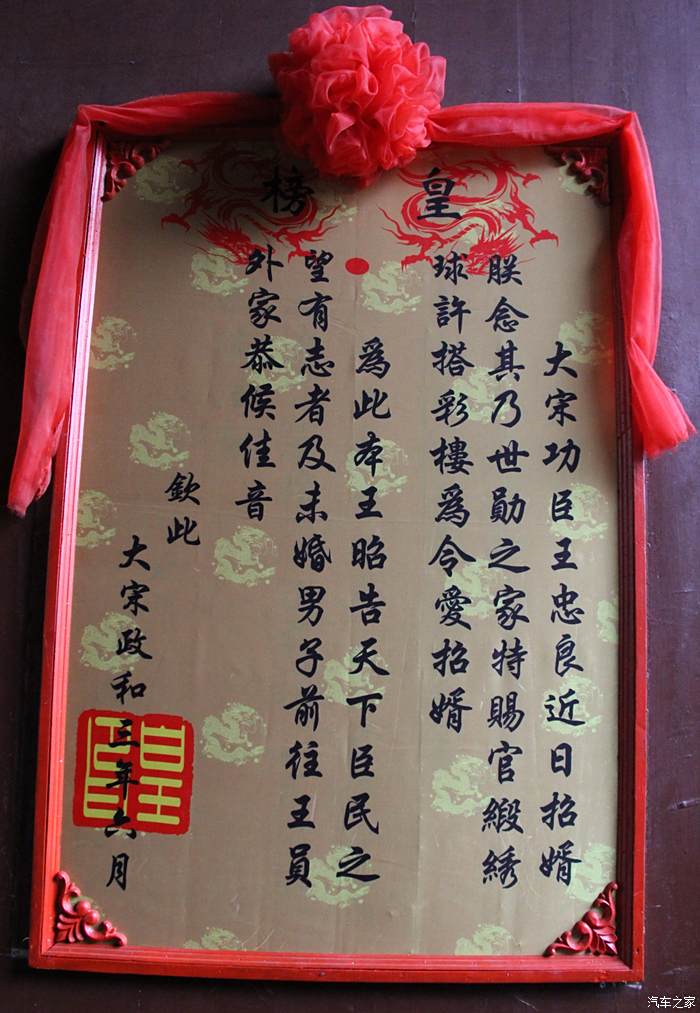 皇榜
大宋功臣王忠良近日招婿
朕念其乃世勛之家特賜官緞綉
球許搭彩樓爲令愛招婿
爲此本王昭告天下臣民之
望有志者及未婚男子前往王員
外家恭候佳音
欽此
大宋政和三年六月
汽车之家